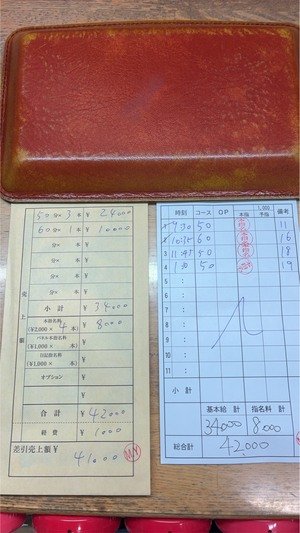 50分× 3本 ¥ 24000
60分× 1本 ¥ 10000
分× 本 ¥
分× 本 ¥
分× 本 ¥
分× 本 ¥
売上額
小計 ¥ 34000
本指名料
(¥2,000× 4本) ¥ 8000
パネル本指名料
(¥1,000× 本) ¥
日記指名料
(¥1,000× 本) ¥
オプション ¥
合計 ¥ 42000
経費 ¥ 1000
差引売上額¥ 41000
時刻 コース OP 本指 1,000 予指 備考
1 9:30 50 11
2 10:35 60 16
3 11:45 50 18
4 1:30 50 19
5 :
6 :
7 :
8 :
9 :
10 :
11 :
小計
基本給 計 指名料 計
34000 8000
総合計 42000